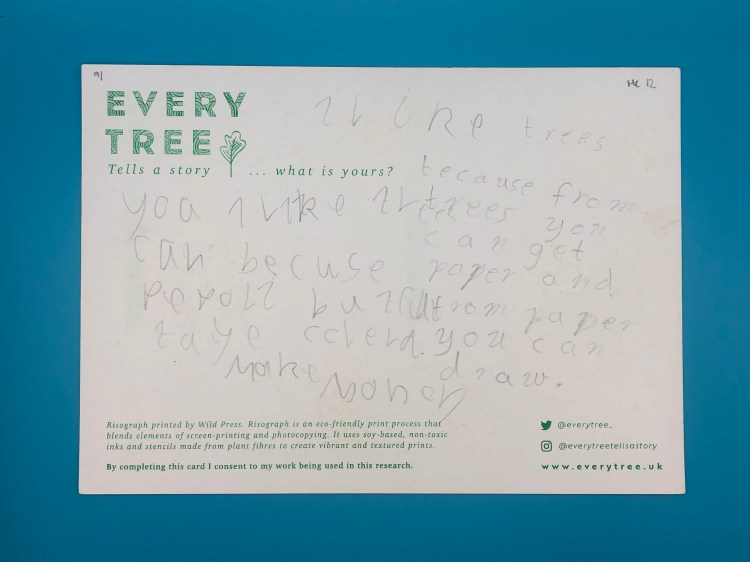 91
HC 12
EVERY
TREE
Tells a story ... what is yours?
I like trees
because from
trees you
can get
paper and
from paper
you can
draw.
you I like
can becuse
make
money
Risograph printed by Wild Press. Risograph is an eco-friendly print process that
blends elements of screen-printing and photocopying. It uses soy-based, non-toxic
inks and stencils made from plant fibres to create vibrant and textured prints.
By completing this card I consent to my work being used in this research.
@everytree_
@everytreetellsastory
www.everytree.uk